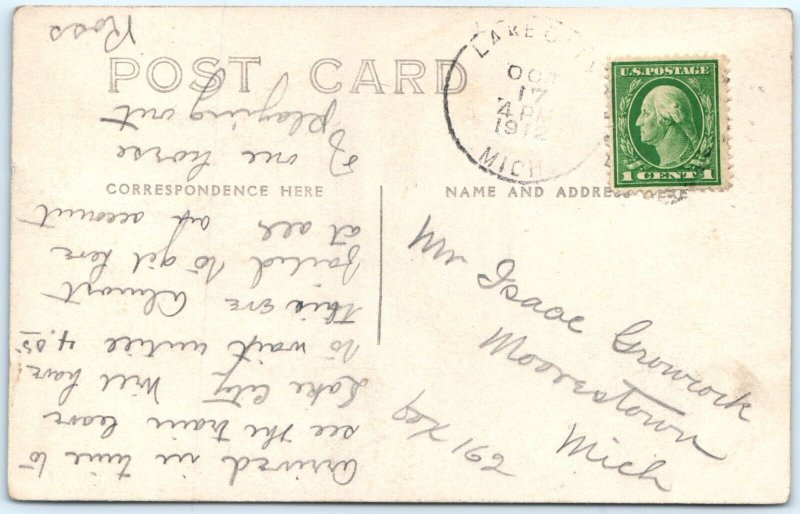 POST CARD
CORRESPONDENCE HERE
NAME AND ADDRESS HERE
LAKE CITY
OCT
17
4 PM
1912
MICH
U.S. POSTAGE
1 CENT 1
Mr Isaac Growrock
Moorestown
Mich
box 162
arrived in time to
see the train leave
Lake City will have
to wait untill 4.05
this eve almost
failed to git here
at all ap account
of one horse
playing out
Ross